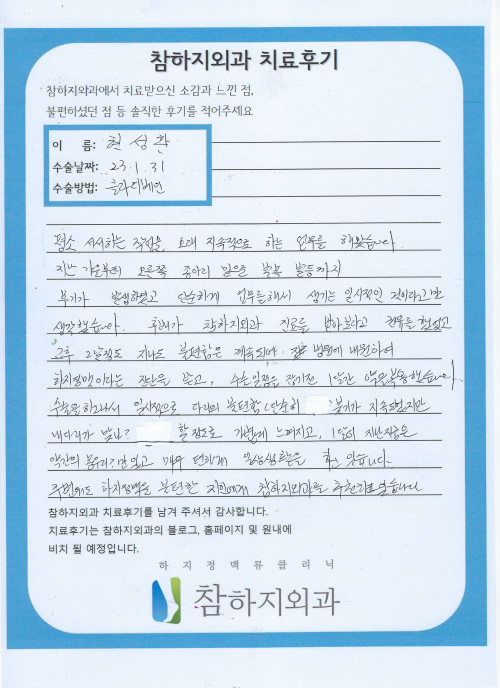 참하지외과 치료후기
참하지외과에서 치료받으신 소감과 느낀 점,
불편하셨던 점 등 솔직한 후기를 적어주세요
이 름: 현성환
수술날짜: 23.1.31
수술방법: 클라리베인
평소 서서하는 직업을 오래 지속적으로 하는 업무를 해왔습니다.
지난 가을부터 오른쪽 종아리 밑으로 불룩 불룩까지
부기가 발생하였고 단순하게 업무를해서 생기는 일시적인 것이라고만
생각했습니다. 후배가 참하지외과 진료를 받아보라고 권유를 했었고
그후 2달정도 지나도 불편함은 계속되어 병원에 내원하여
하지정맥이라는 진단을 받고, 수술일정을 잡기전 1달간 약을복용했습니다
수술을하고나서 일시적으로 다리의 불편함(단순히 붓기가 지속되었지만
내다리가 맞나? 할정도로 가볍게 느껴지고, 1달이 지난지금은
약간의 붓기만있고 매우 편하게 일상생활을 하고 있습니다.
주변에도 하지정맥을 불편한 지인에게 참하지외과를 추천하고있습니다
참하지외과 치료후기를 남겨 주셔서 감사합니다.
치료후기는 참하지외과의 블로그, 홈페이지 및 원내에
비치 될 예정입니다.
하지정맥류클리닉
참하지외과